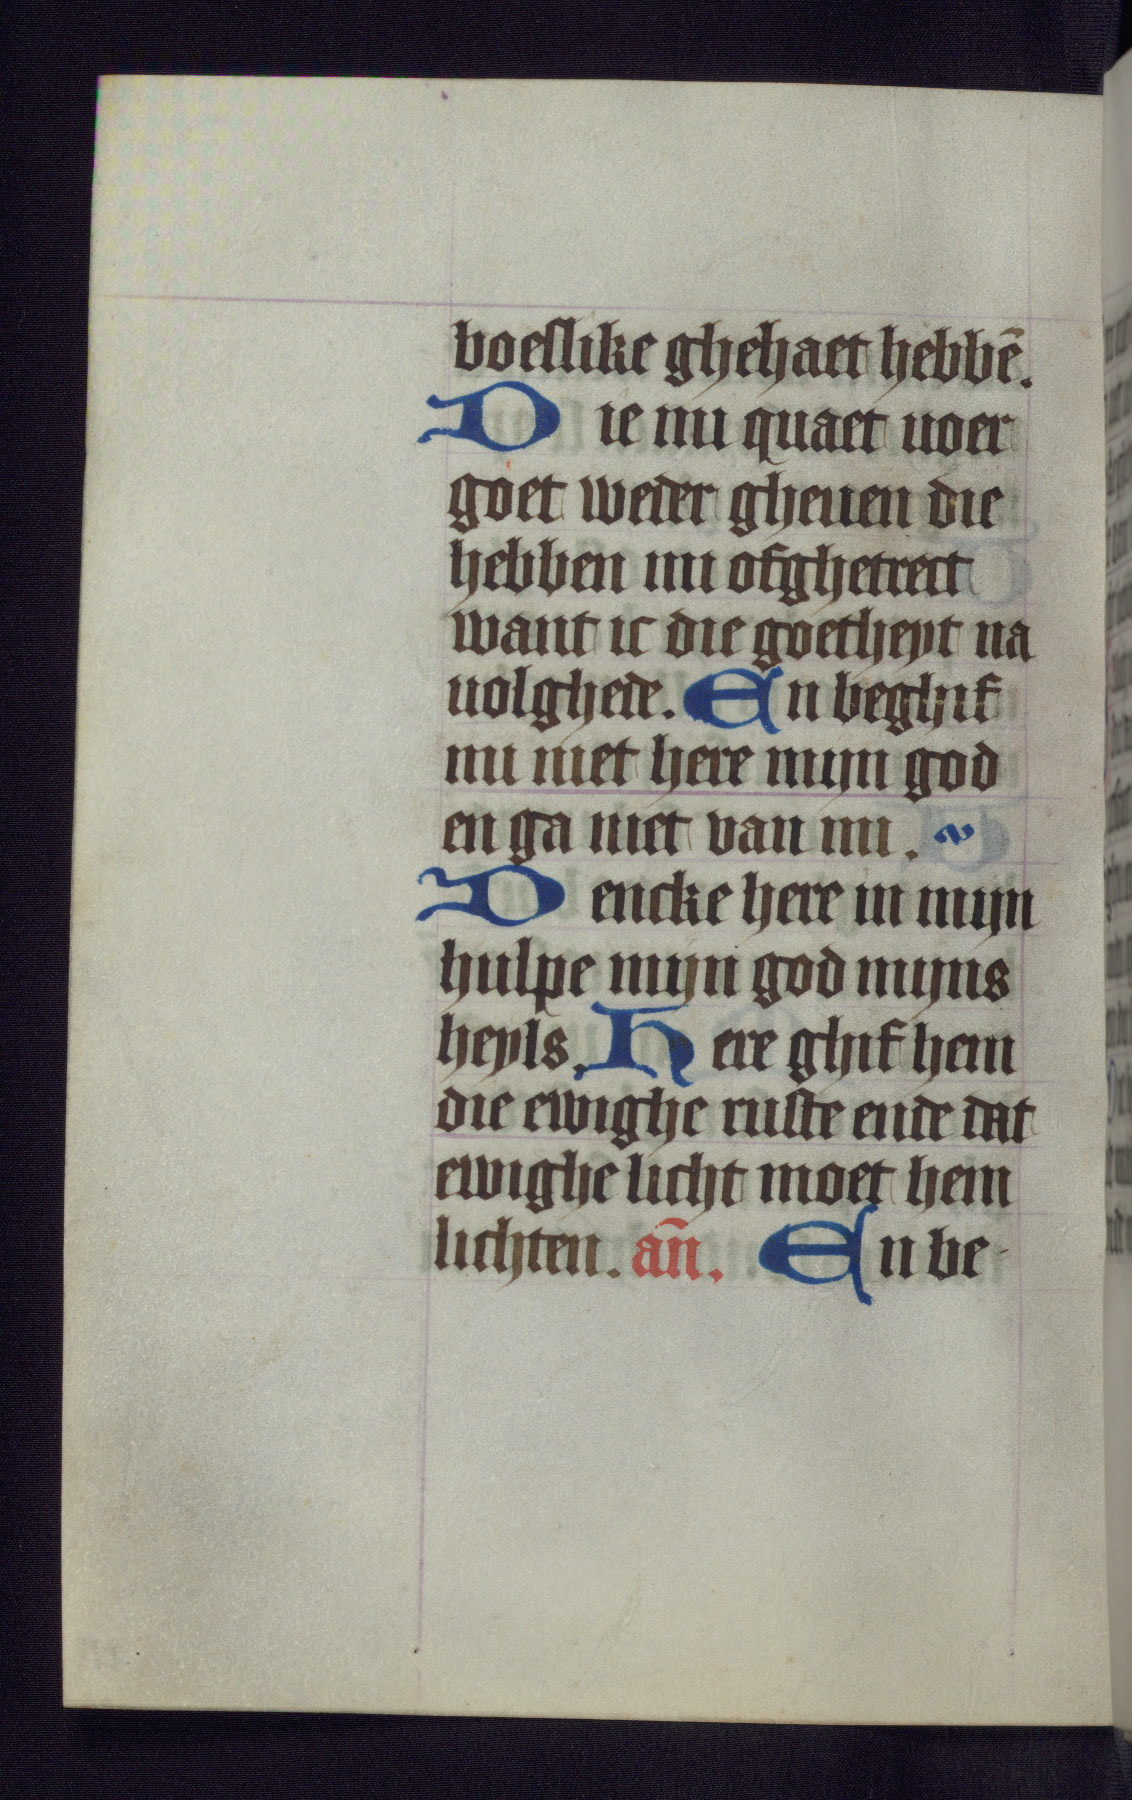 boeslike ghehaet hebbē.
Die mi quaet uoer
goet weder gheuen die
hebben mi ofghetrect
want ic die goetheyt na
uolghede. En beghif
mi niet here mijn god
en ga niet van mi.
Dencke here in mijn
hulpe mijn god mijns
heyls. Here ghif hem
die ewighe ruste ende dat
ewighe licht moet hem
lichten. añ. En be-